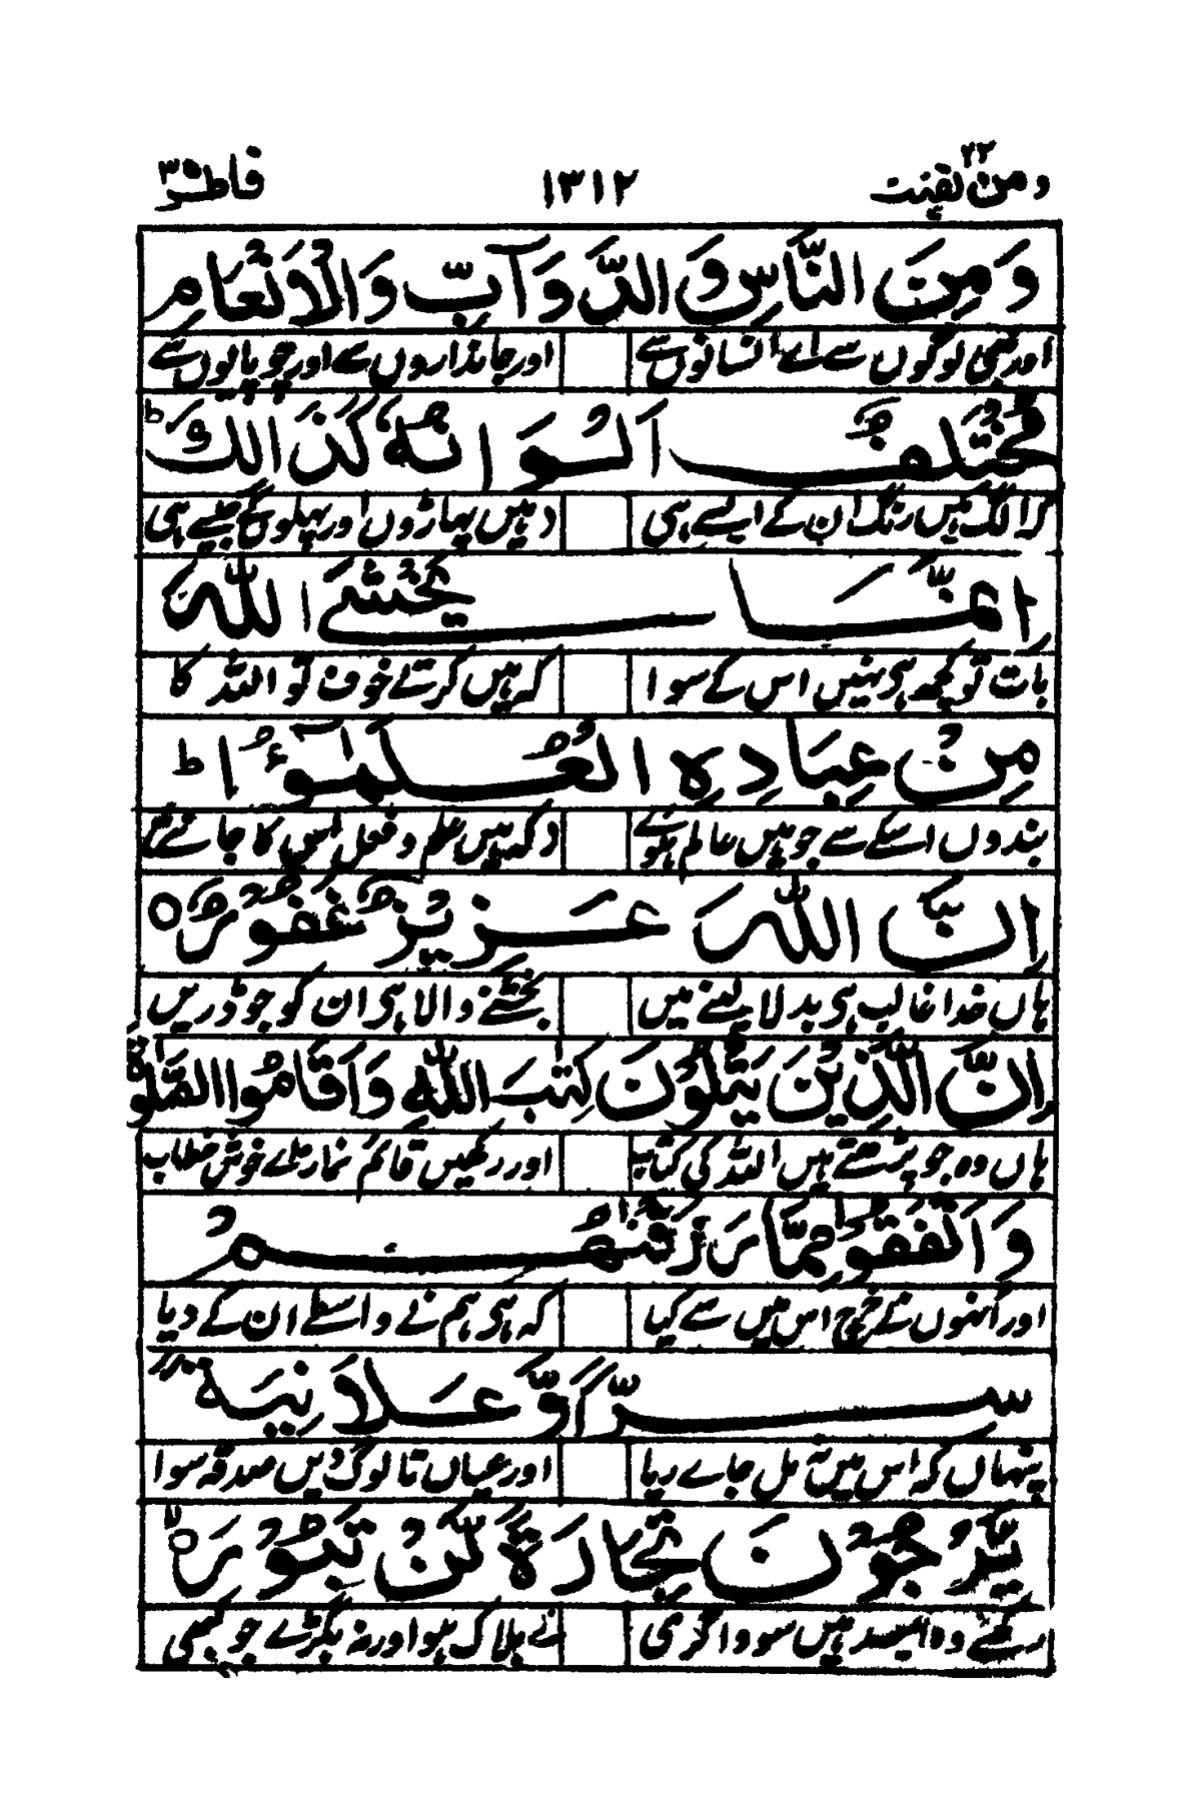 ومن یقنت ۲۲ ۱۳۱۲ فاطر ۳۵
وَمِنَ النَّاسِ وَ الدَّوَآبِّ وَالْاَنْعَامِ
اور بھی لوگوں سے اے انسانوں سے اور جانداروں سے اور چوپایوں سے
مُخْتَلِفٌ اَلْوَانُهٗ كَذَالِكَ ؕ
الگ ہیں رنگ ان کے ایسے ہی دہیں پہاڑوں اور پہلو کے جیسے ہی
اِنَّمَا يَخْشَى اللّٰهَ
بات تو کچھ ہی نہیں اس کے سوا کہ ہیں کرتے خوف تو اللہ کا
مِنْ عِبَادِهِ الْعُلَمٰٓؤُا ؕ
بندوں اسکے سے جو ہیں عالم ہوئے دکہ ہیں علم و فعل اس کا جانتے
اِنَّ اللّٰهَ عَزِيْزٌ غَفُوْرٌ ○
ہاں خدا غالب ہی بدلا لینے میں بخشنے والا ہی ان کو جو ڈریں
اِنَّ الَّذِيْنَ يَتْلُوْنَ كِتٰبَ اللّٰهِ وَاَقَامُوا الصَّلٰوةَ
ہاں وہ جو پڑھتے ہیں اللہ کی کتاب اور رکھیں قائم نماز ملے خوش خطاب
وَاَنْفَقُوْا مِمَّا رَزَقْنٰهُمْ
اور انہوں نے خرچ اس میں سے کیا کہ ہی ہم نے واسطے ان کے دیا
سِرًّا وَّعَلَانِيَةً
پنہاں کہ اس میں نہ مل جاے ریا اور عیاں تا لوگ دیں صدقہ سوا
يَّرْجُوْنَ تِجَارَةً لَّنْ تَبُوْرَ ○
رکھتے وہ امید ہیں سوداگری نے ہلاک ہو اور نہ بگڑے جو کبھی